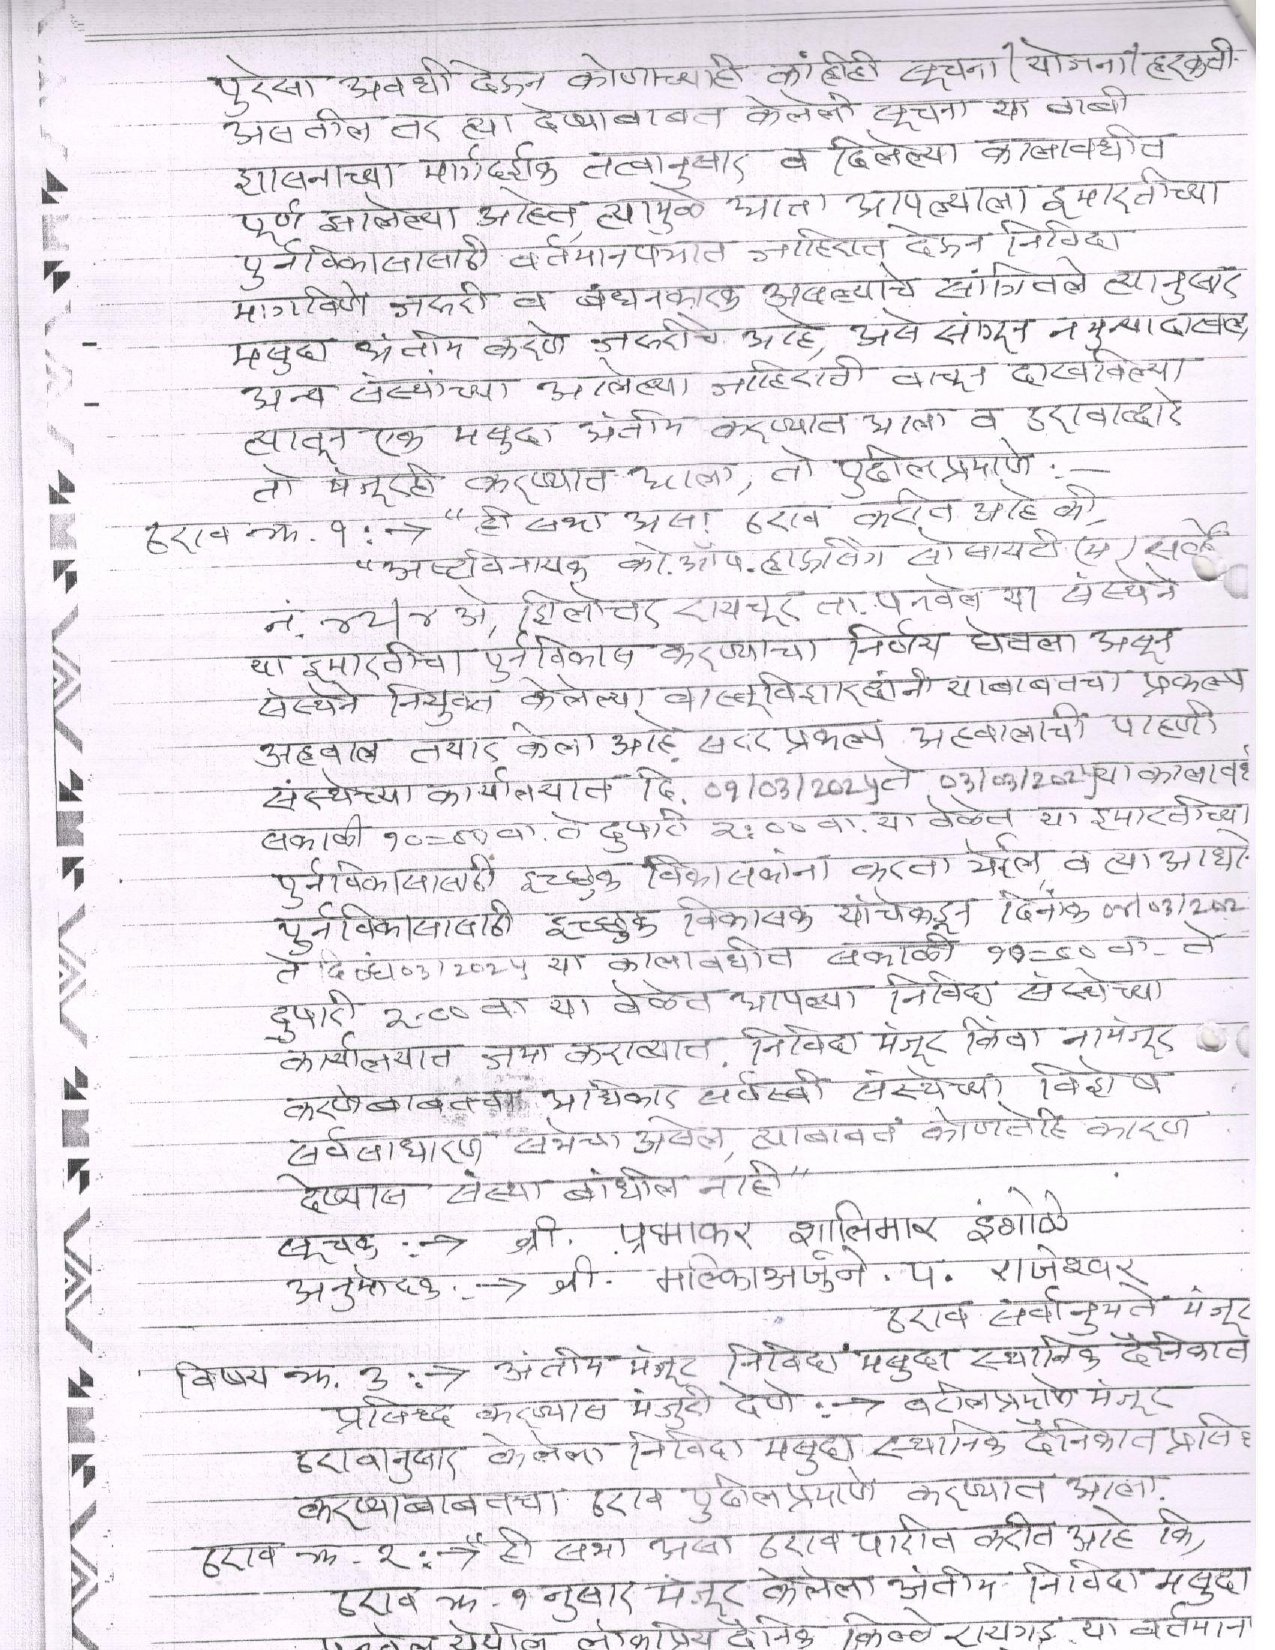 पुरेसा अवधी देऊन कोणाच्याही कांहीही सूचना / योजना / हरकती
असतील तर त्या देण्याबाबत केलेली सूचना या बाबी
शासनाच्या मार्गदर्शक तत्वानुसार व दिलेल्या कालावधीत
पूर्ण झालेल्या आहेत, त्यामुळे आता आपल्याला इमारतीच्या
पुर्नविकासासाठी वर्तमानपत्रात जाहिरात देऊन निविदा
मागविणे जरुरी व बंधनकारक असल्याचे सांगितले त्यानुसार
मसुदा अंतीम करणे जरुरीचे आहे, असे सांगून नमुन्यादाखल
अन्य संस्थांच्या आलेल्या जाहिराती वाचून दाखविल्या
त्यातून एक मसुदा अंतीम करण्यात आला व ठरावाव्दारे
तो मंजूरही करण्यात आला, तो पुढीलप्रमाणे :-
ठराव क्र. १ :→ "ही सभा असा ठराव करीत आहे की,
"अष्टविनायक को.ऑप. हाऊसिंग सोसायटी (म) सर्वे
नं. ४२/४ अे, शिलोत्तर रायचूर ता. पनवेल या संस्थेने
या इमारतीचा पुर्नविकास करण्याचा निर्णय घेतला असून
संस्थेने नियुक्त केलेल्या वास्तूविशारदांनी याबाबतचा प्रकल्प
अहवाल तयार केला आहे. सदर प्रकल्प अहवालाची पाहणी
संस्थेच्या कार्यालयात दि. ०१/०३/२०२५ ते ०३/०३/२०२५ या कालावधी
सकाळी १०=०० वा. ते दुपारी २:०० वा. या वेळेत या इमारतीच्या
पुर्नविकासासाठी इच्छुक विकासकांना करता येईल, व त्या आधारे
पुर्नविकासासाठी इच्छुक विकासक यांचेकडून दिनांक ०४/०३/२०२
ते दि. /०३/२०२५ या कालावधीत सकाळी १०=०० वा. ते
दुपारी २.०० वा या वेळेत आपल्या निविदा संस्थेच्या
कार्यालयात जमा कराव्यात. निविदा मंजूर किंवा नामंजूर
करणेबाबतचा अधिकार सर्वस्वी संस्थेच्या विशेष
सर्वसाधारण सभेचा असेल, त्याबाबत कोणतेहि कारण
देण्यास संस्था बांधील नाही"
सूचक :→ श्री. प्रभाकर शालिमार इंगोळे
अनुमोदक :→ श्री. मल्किाअर्जुन. प. राजेश्वर
ठराव सर्वानुमते मंजूर
विषय क्र. ३ :→ अंतीम मंजूर निविदा मसुदा स्थानिक दैनिकात
प्रसिध्द करण्यास मंजुरी देणे :→ वरीलप्रमाणे मंजूर
ठरावानुसार केलेला निविदा मसुदा स्थानिक दैनिकात प्रसिध्
करण्याबाबतचा ठराव पुढीलप्रमाणे करण्यात आला.
ठराव क्र - २ :→ "ही सभा असा ठराव पारीत करीत आहे कि,
ठराव क्र - १ नुसार मंजूर केलेला अंतीम निविदा मसुदा
पनवेल येथील लोकप्रिय दैनिक किल्ले रायगड या वर्तमान